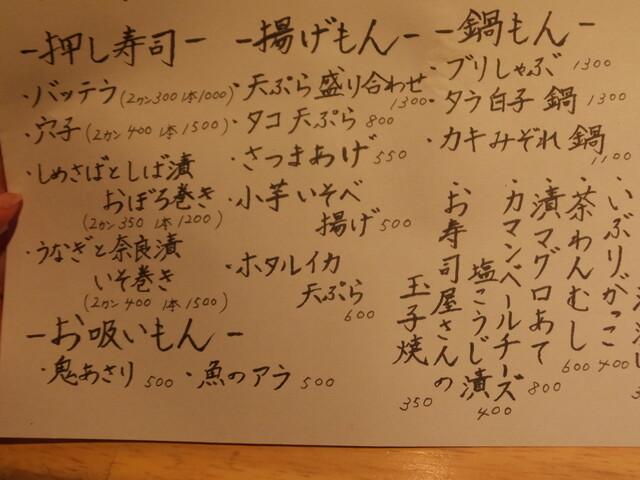 -押し寿司-
・バッテラ(2カン300 1本1000)
・穴子(2カン400 1本1500)
・しめさばとしば漬
おぼろ巻き
(2カン350 1本1200)
・うなぎと奈良漬
いそ巻き
(2カン400 1本1500)
-お吸いもん-
・鬼あさり 500
・魚のアラ 500
-揚げもん-
・天ぷら盛り合わせ
1300
・タコ天ぷら 800
・さつまあげ 550
・小芋いそべ
揚げ 500
・ホタルイカ
天ぷら
600
-鍋もん-
・ブリしゃぶ 1300
・タラ白子鍋 1300
・カキみぞれ鍋
1100
・いぶりがっこ 400
・茶わんむし 600
・漬マグロあて 800
・カマンベールチーズ
塩こうじ漬 400
・お寿司屋さんの
玉子焼 350